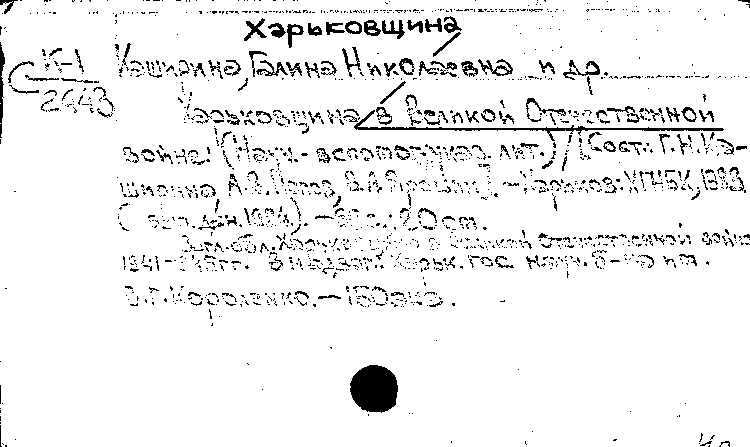 Харьковщина
К-1
2643
Каширина, Галина Николаевна и др.
Харьковщина в Великой Отечественной
войне: (Науч.-вспомог. указ. лит.) / [Сост.: Г.Н. Ка-
ширина, А.В. В.А. Ярошик]. — Харьков: ХГНБК, 1983
( 1984). — с.; 20 см.
Загл. обл. Харьковщина в Великой Отечественной войне
1941-1945 гг. В надзаг.: Харьк. гос. науч. б-ка им.
В.Г. Короленко. — 150 экз.